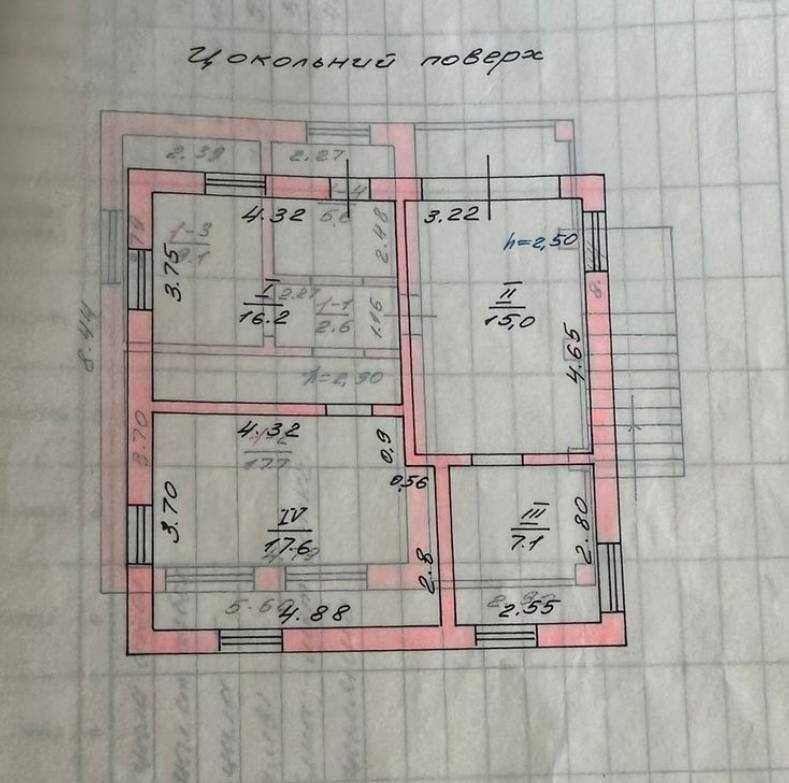 Цокольний поверх
2.39
2.27
4.32
1-4
5.6
3.22
h=2,50
1-3
3.75
2.48
I
16.2
2.27
1-1
2.6
1.16
II
15,0
8.44
4.65
h=2,90
4.32
17.7
0,9
3.70
0,56
3.70
IV
17.6
III
7.1
2.80
2.8
5.60
4.88
2.55